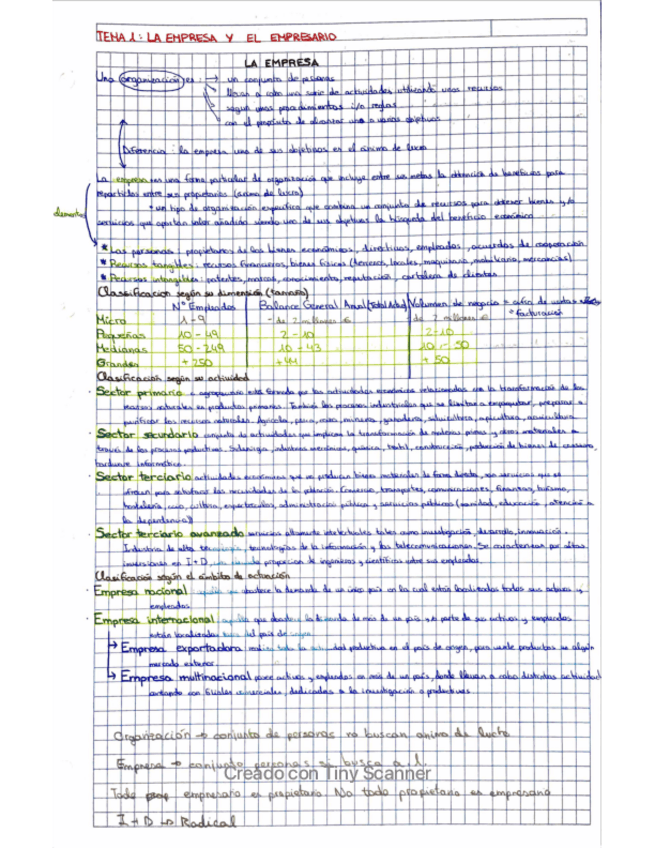 TEMA 1: LA EMPRESA Y EL EMPRESARIO
LA EMPRESA
Una organización es: → un conjunto de personas
llevan a cabo una serie de actividades utilizando unos recursos
según unos procedimientos y/o reglas
con el propósito de alcanzar uno o varios objetivos
Diferencia: la empresa uno de sus objetivos es el ánimo de lucro
La empresa es una forma particular de organización que incluye entre sus metas la obtención de beneficios para
repartirlos entre sus propietarios (ánimo de lucro)
* un tipo de organización específica que combina un conjunto de recursos para obtener bienes y/o
servicios que aportan valor añadido siendo uno de sus objetivos la búsqueda del beneficio económico
elementos
* Las personas: propietarios de los bienes económicos, directivos, empleados, acuerdos de cooperación
* Recursos tangibles: recursos financieros, bienes físicos (terrenos, locales, maquinaria, mobiliario, mercancías)
* Recursos intangibles: patentes, marcas, conocimiento, reputación, cartera de clientes
Clasificación según su dimensión (tamaño)
Nº Empleados Balance General Anual (Total Activo) Volumen de negocio = cifra de ventas
* facturación
Micro 1-9 - de 2 millones € - de 2 millones €
Pequeñas 10-49 2-10 2-10
Medianas 50-249 10-43 10-50
Grandes +250 +44 +50
Clasificación según su actividad
· Sector primario agrupación está formado por las actividades económicas relacionadas con la transformación de los
recursos naturales en productos primarios. También los procesos industriales que se limitan a empaquetar, preparar o
purificar los recursos naturales. Agrícola, pesca, minería, ganadería, silvicultura, apicultura, acuicultura
· Sector secundario conjunto de actividades que implican la transformación de materias primas y otros materiales a
través de los procesos productivos. Siderurgia, industrias mecánicas, química, textil, construcción, producción de bienes de consumo,
hardware informático.
· Sector terciario actividades económicas que no producen bienes materiales de forma directa, son servicios que se
ofrecen para satisfacer las necesidades de la población. Comercio, transportes, comunicaciones, finanzas, turismo,
hostelería, ocio, cultura, espectáculos, administración pública y servicios públicos (sanidad, educación, atención a
la dependencia)
Sector terciario avanzado servicios altamente intelectuales tales como investigación, desarrollo, innovación.
Industria de alta tecnología, tecnologías de la información y las telecomunicaciones. Se caracterizan por altas
inversiones en I+D, proporción de ingenieros y científicos entre sus empleados.
Clasificación según el ámbito de actuación
· Empresa nacional aquella que abastece la demanda de un único país en la cual están localizados todos sus activos y
empleados
· Empresa internacional aquella que abastece la demanda de más de un país y/o parte de sus activos y empleados
están localizados fuera del país de origen
→ Empresa exportadora realiza toda la actividad productiva en el país de origen, para vender productos en algún
mercado exterior
→ Empresa multinacional posee activos y empleados en más de un país, donde llevan a cabo distintas actividades
contando con filiales comerciales, dedicadas a la investigación o productivas
Organización → conjunto de personas no buscan animo de lucro
Empresa → conjunto personas si busca a.l.
Creado con Tiny Scanner
Todo empresario es propietario. No todo propietario es empresario
I+D → Radical